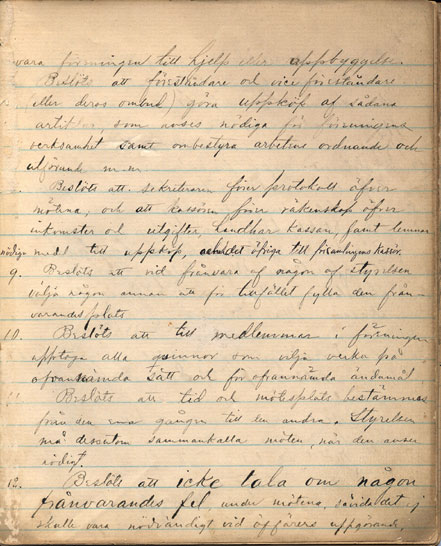 vara föreningen till hjelp eller uppbyggelse.
Beslöts att föreståndare och vice föreståndare
(eller deras ombud) göra uppköp af sådana
som anses nödiga för föreningens
verksamhet samt ombestyra arbetens ordnande och
utförande m.m.
Beslöts att sekreteraren förer protokoll öfver
mötena, och att kassören förer räkenskap öfver
inkomster och utgifter, handhar kassan, samt lemnar
nödiga medel till uppköp, det öfriga till församlingens kassör.
9. Beslöts att vid frånvaro af någon af styrelsen
välja någon annan att för tillfället fylla den från-
varandes plats.
10. Beslöts att till medlemmar i föreningen
upptaga alla qvinnor som vilja verka på
ofvannämda sätt och för ofvannämda ändamål
11. Beslöts att tid och mötesplats bestämmes
från den ena gången till en andra. Styrelsen
må dessutom sammankalla möten, när den anser
nödigt.
12. Beslöts att icke tala om någon
frånvarandes fel under mötena, såvida det ej
skulle vara nödvändigt vid affärers uppgörande,